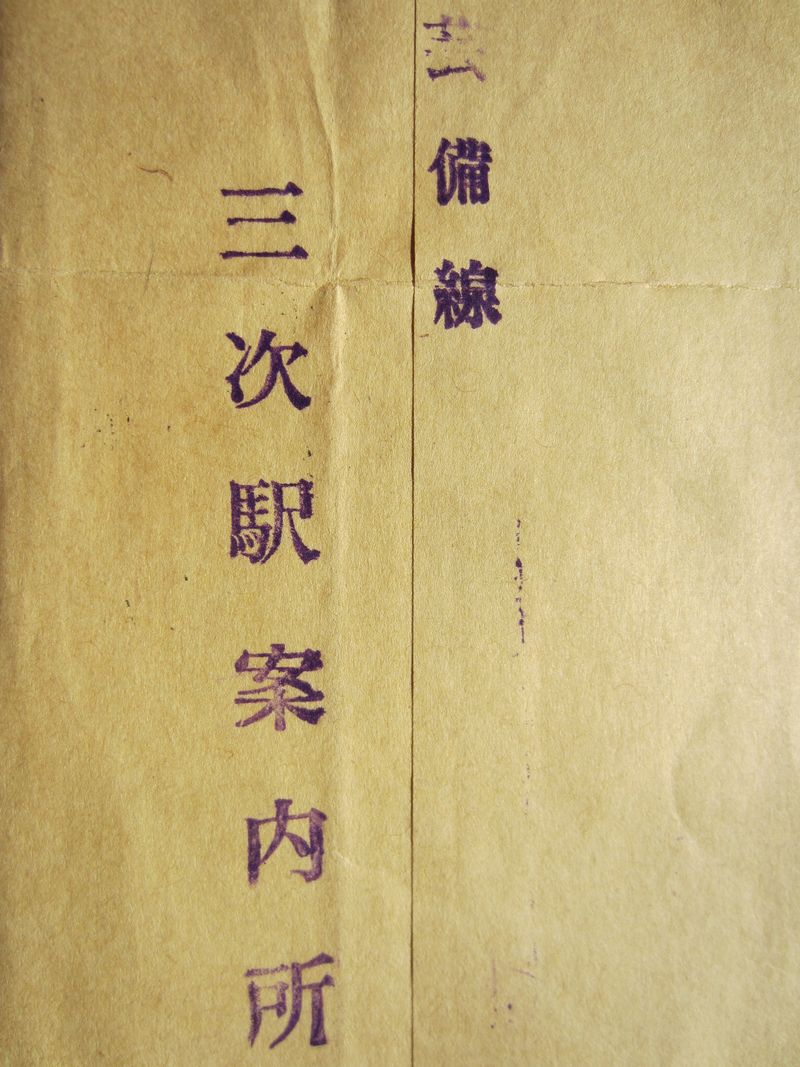 芸備線
三次駅案内所